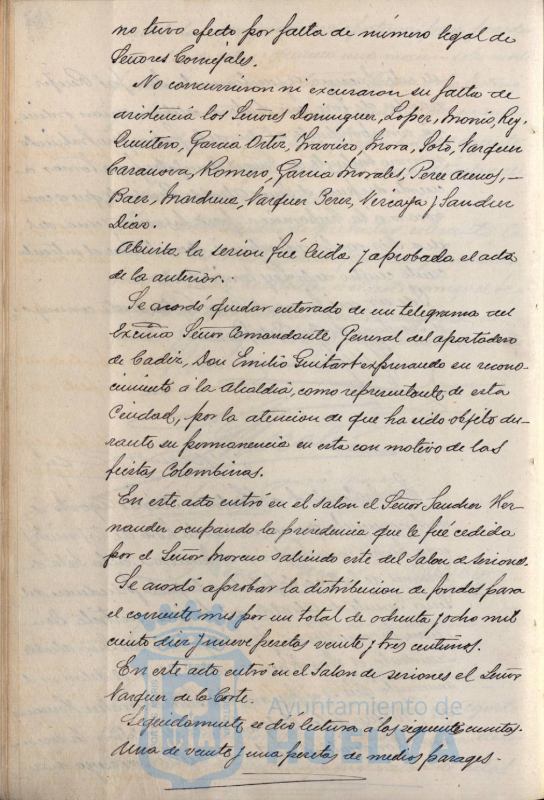 no tuvo efecto por falta de número legal de
Señores Concejales.
No concurrieron ni excusaron su falta de
asistencia los Señores Dominguez, Lopez, Monis, Rey,
Quintero, Garcia Ortiz, Traviro, Mora, Soto, Vazquez
Casanova, Romero, Garcia Morales, Perez Arenos, —
Baez, Vazquez Perez, Vizcaya y Sanchez
Diaz.
Abierta la sesion fué leida y aprobada el acta
de la anterior.
Se acordó quedar enterado de un telegrama del
Excmo Señor Comandante General del apostadero
de Cadiz, Don Emilio Guitart expresando su recono-
cimiento á la Alcaldia, como representante de esta
Ciudad, por la atencion de que ha sido objeto du-
rante su permanencia en esta con motivo de las
fiestas Colombinas.
En este acto entró en el salon el Señor Sanchez Her-
nandez ocupando la presidencia que le fué cedida
por el Señor Moreno saliendo este del Salon de sesiones.
Se acordó aprobar la distribucion de fondos para
el corriente mes por un total de ochenta y ocho mil
ciento diez y nueve pesetas veinte y tres centimos.
En este acto entró en el Salon de sesiones el Señor
Vazquez de la Corte.
Seguidamente se dió lectura a las siguientes cuentas.
Una de veinte y una pesetas de medios parages.
Ayuntamiento de
HUELVA